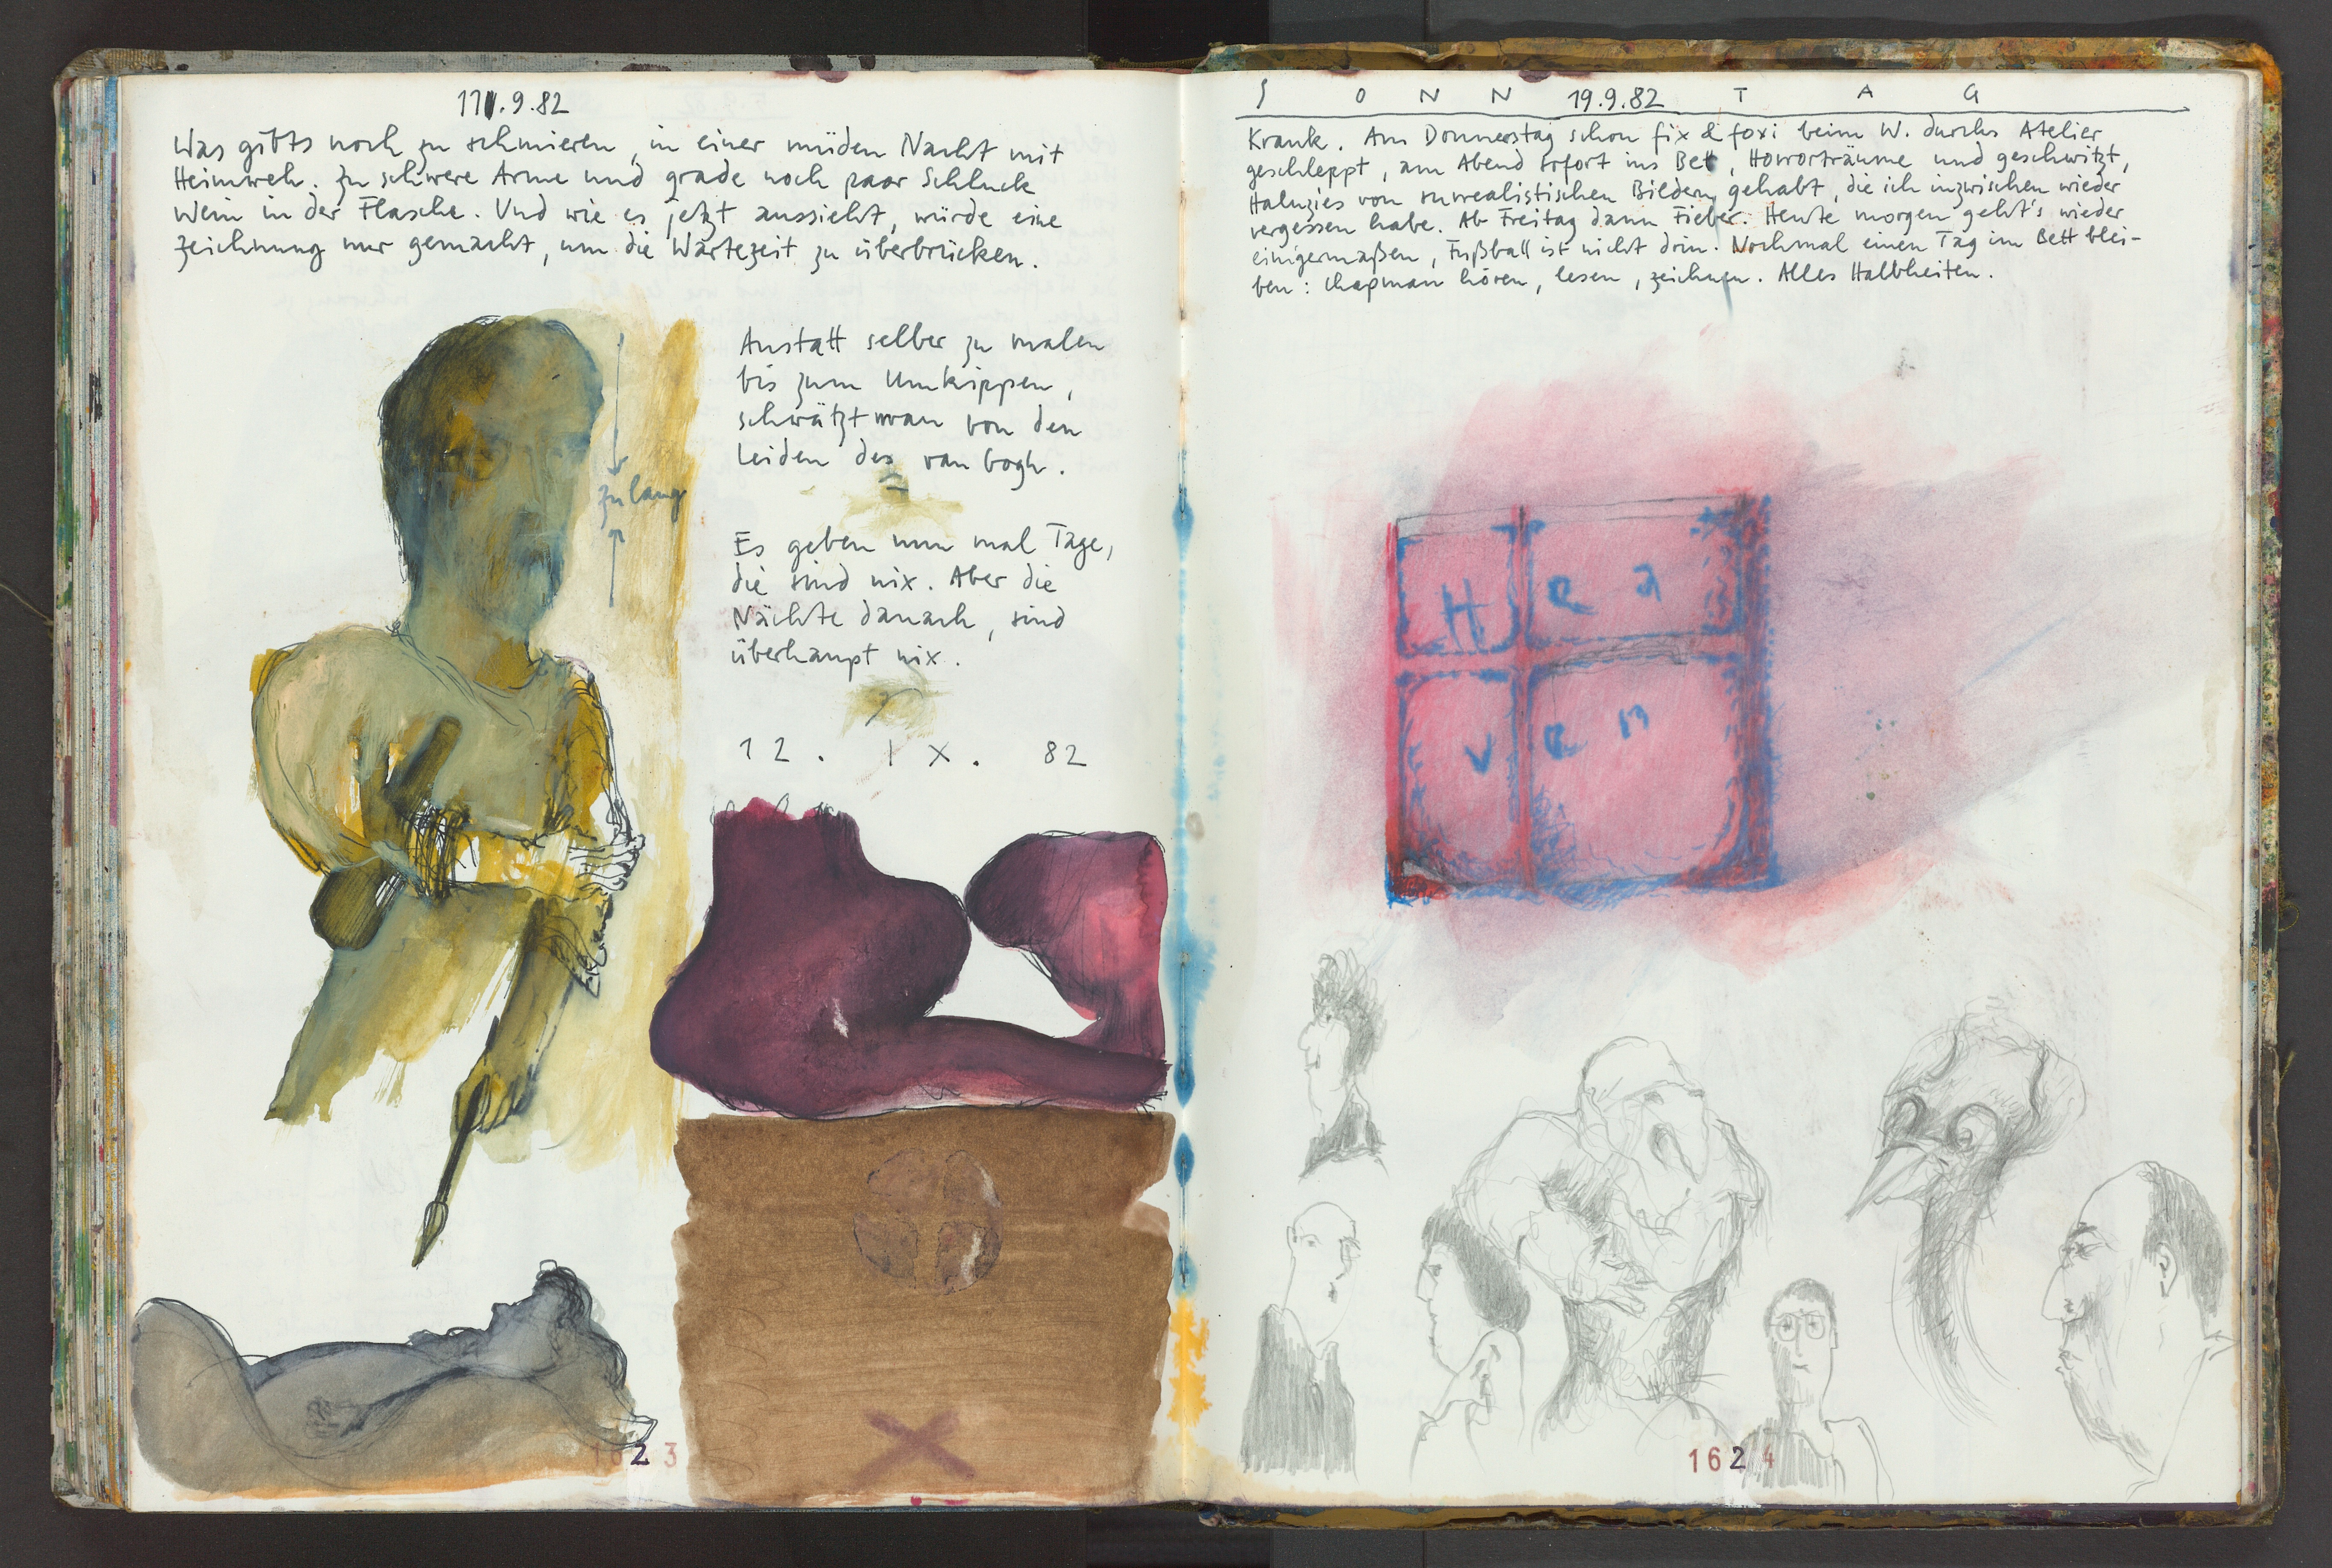 11.9.82
Was gibts noch zu schmieren, in einer müden Nacht mit
Heimweh. Zu schwere Arme und grade noch paar Schluck
Wein in der Flasche. Und wie es jetzt aussieht, würde eine
Zeichnung nur gemacht, um die Wartezeit zu überbrücken.
zu lang
Anstatt selber zu malen
bis zum Umkippen,
schwätzt man von den
Leiden des van Gogh.
Es geben nun mal Tage,
die sind nix. Aber die
Nächte danach, sind
überhaupt nix.
12. IX. 82
1623
S O N N 19.9.82 T A G
Krank. Am Donnerstag schon fix & foxi beim W. durchs Atelier
geschleppt, am Abend sofort ins Bett, Horrorträume und geschwitzt,
Haluzies von surrealistischen Bildern gehabt, die ich inzwischen wieder
vergessen habe. Ab Freitag dann Fieber. Heute morgen geht's wieder
einigermaßen, Fußball ist nicht drin. Nochmal einen Tag im Bett blei-
ben: Chapman hören, lesen, zeichnen. Alles Halbheiten.
H e a
v e n
1624